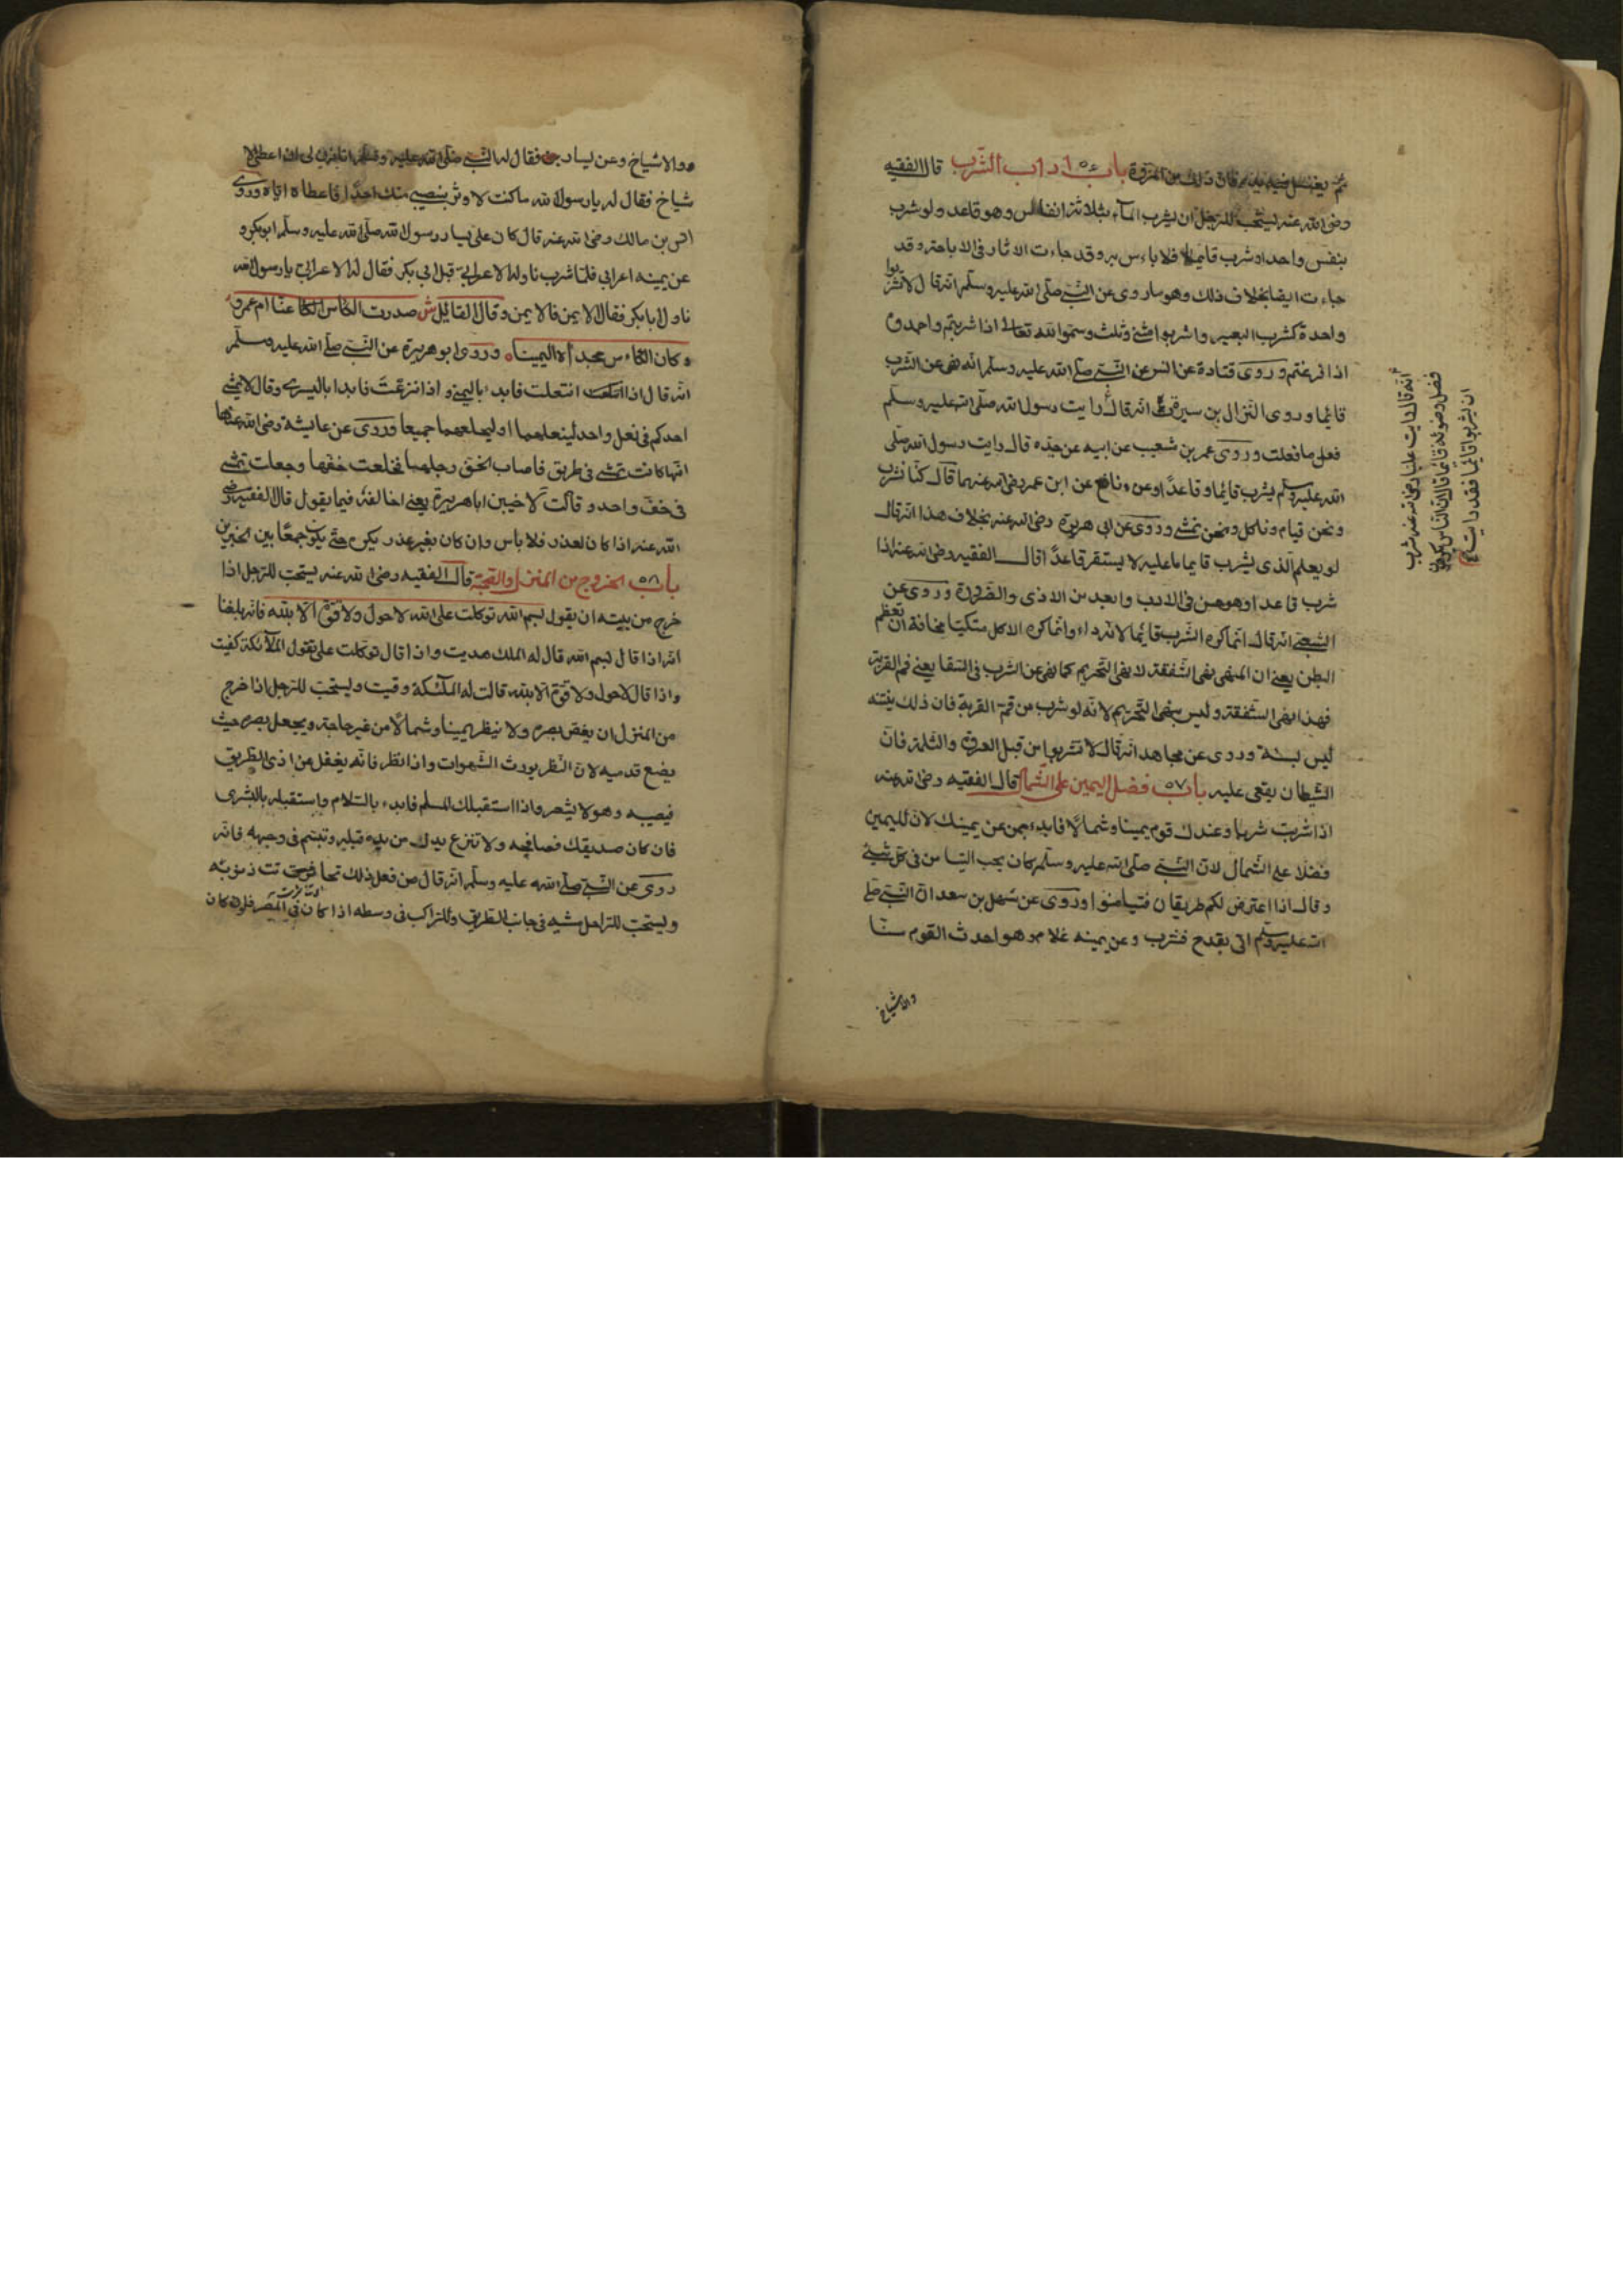 ثم يغتسل فيه يده فان ذلك من المروة باب ٥٦ اداب الشرب قال الفقيه
رضى الله عنه يستحب للرجل ان يشرب المآء بثلاثة انفاس وهو قاعد ولو شرب
بنفس واحد او شرب قايما فلا باءس به وقد جاءت الاثار فى الاباحة وقد
جاءت ايضا بخلاف ذلك وهو ما روى عن النبى صلى الله عليه وسلم انه قال لا تشربوا
واحدة كشرب البعير واشربوا مثنى وثلث وسموا الله تعالى اذا شربتم واحمدوه
اذا فرغتم وروى قتادة عن انس عن النبى صلى الله عليه وسلم انه نهى عن الشرب
قائما وروى النزال بن سبرة انه قال رايت رسول الله صلى الله عليه وسلم
فعل ما فعلت وروى عمر بن شعيب عن ابيه عن جده قال رايت رسول الله صلى
الله عليه وسلم يشرب قائما وقاعدا وعن نافع عن ابن عمر رضى الله عنهما قال كنا نشرب
ونحن قيام وناكل ونحن نمشى وروى عن ابى هريرة رضى الله عنه بخلاف هذا انه قال
لو يعلم الذى يشرب قايما ما عليه لا يستقر قاعدا قال الفقيه رضى الله عنه اذا
شرب قاعدا وهو حسن فى الادب وابعد من الاذى والضرورة وروى عن
الشعبى انه قال انما كره الشرب قائما لانه داء وانما كره الاكل متكيا مخافة ان تعظم
البطن يعنى ان المنهى نهى الشفقة لا نهى التحريم كما نهى عن الشرب فى السقا يعنى فم القربة
فهذا نهى الشفقة وليس بنهى التحريم لانه لو شرب من فم القربة فان ذلك ينتنه
ليس بسنة وروى عن مجاهد انه قال لا تشربوا من قبل العروة والثلمة فان
الشيطان يقعى عليه باب ٥٧ فضل اليمين على الشمال قال الفقيه رضى الله عنه
اذا شربت شربا وعندك قوم يمينا وشمالا فابدء بمن عن يمينك لان لليمين
فضلا على الشمال لان النبى صلى الله عليه وسلم كان يحب التيامن فى كل شيئ
وقال اذا اعترض لكم طريقان فتيامنوا وروى عن سهل بن سعد ان النبى صلى
الله عليه وسلم اتى بقدح فشرب وعن يمينه غلام وهو احدث القوم سنا
والاشياخ
انه قال رايت عليا رضى الله عنه شرب
فضل وضوئه قائما قال ان الناس يكرهون
ان يشربوا قائما فقد رايت
والاشياخ وعن يساره فقال له النبى صلى الله عليه وسلم اتاذن لى ان اعطى الا
شياخ فقال له يا رسول الله ما كنت لاوثر بنصيبى منك احدا فاعطاه اياه وروى
انس بن مالك رضى الله عنه قال كان على يسار رسول الله صلى الله عليه وسلم ابو بكر و
عن يمينه اعرابى فلما شرب ناوله الاعرابى قبل ابى بكر فقال له الاعرابى يا رسول الله
ناول ابا بكر فقال الايمن فالايمن وقال القائل ش صددت الكاس عنا ام عمرو
وكان الكاءس مجراه اليمينا وروى ابو هريرة عن النبى صلى الله عليه وسلم
انه قال اذا انتعلت فابدء باليمنى واذا نزعت فابدا باليسرى وقال لا يمشى
احدكم فى نعل واحد لينعلهما او ليخلعهما جميعا وروى عن عايشة رضى الله عنها
انها كانت تمشى فى طريق فاصاب الخف رجلها فخلعت خفها وجعلت تمشى
فى خف واحد وقالت لاخيبن ابا هريرة يعنى اخالفه فيما يقول قال الفقيه رضى
الله عنه اذا كان لعذر فلا باس وان كان بغير عذر يكره حتى يكون جمعا بين الخبرين
باب ٥٨ الخروج من المنزل والتحية قال الفقيه رضى الله عنه يستحب للرجل اذا
خرج من بيته ان يقول بسم الله توكلت على الله لا حول ولا قوة الا بالله فانه بلغنا
انه اذا قال بسم الله قال له الملك هديت واذا قال توكلت على تقول الملآئكة كفيت
واذا قال لا حول ولا قوة الا بالله قالت له الملئكة وقيت ويستحب للرجل اذا خرج
من المنزل ان يغض بصره ولا ينظر يمينا وشمالا من غير حاجة ويجعل بصره حيث
يضع قدميه لان النظر يورث الشهوات واذا نظر فانه يغفل عن اذى الطريق
فيصيبه وهو لا يشعر واذا استقبلك المسلم فابدء بالسلام واستقبله بالبشرى
فان كان صديقك فصافحه ولا تنزع يدك من يده قبله وتبسم فى وجهه فانه
روى عن النبى صلى الله عليه وسلم انه قال من فعل ذلك تحاتت ذنوبه
ويستحب للراجل مشيه فى جانب الطريق وللراكب فى وسطه اذا كان فى المصر فان كان